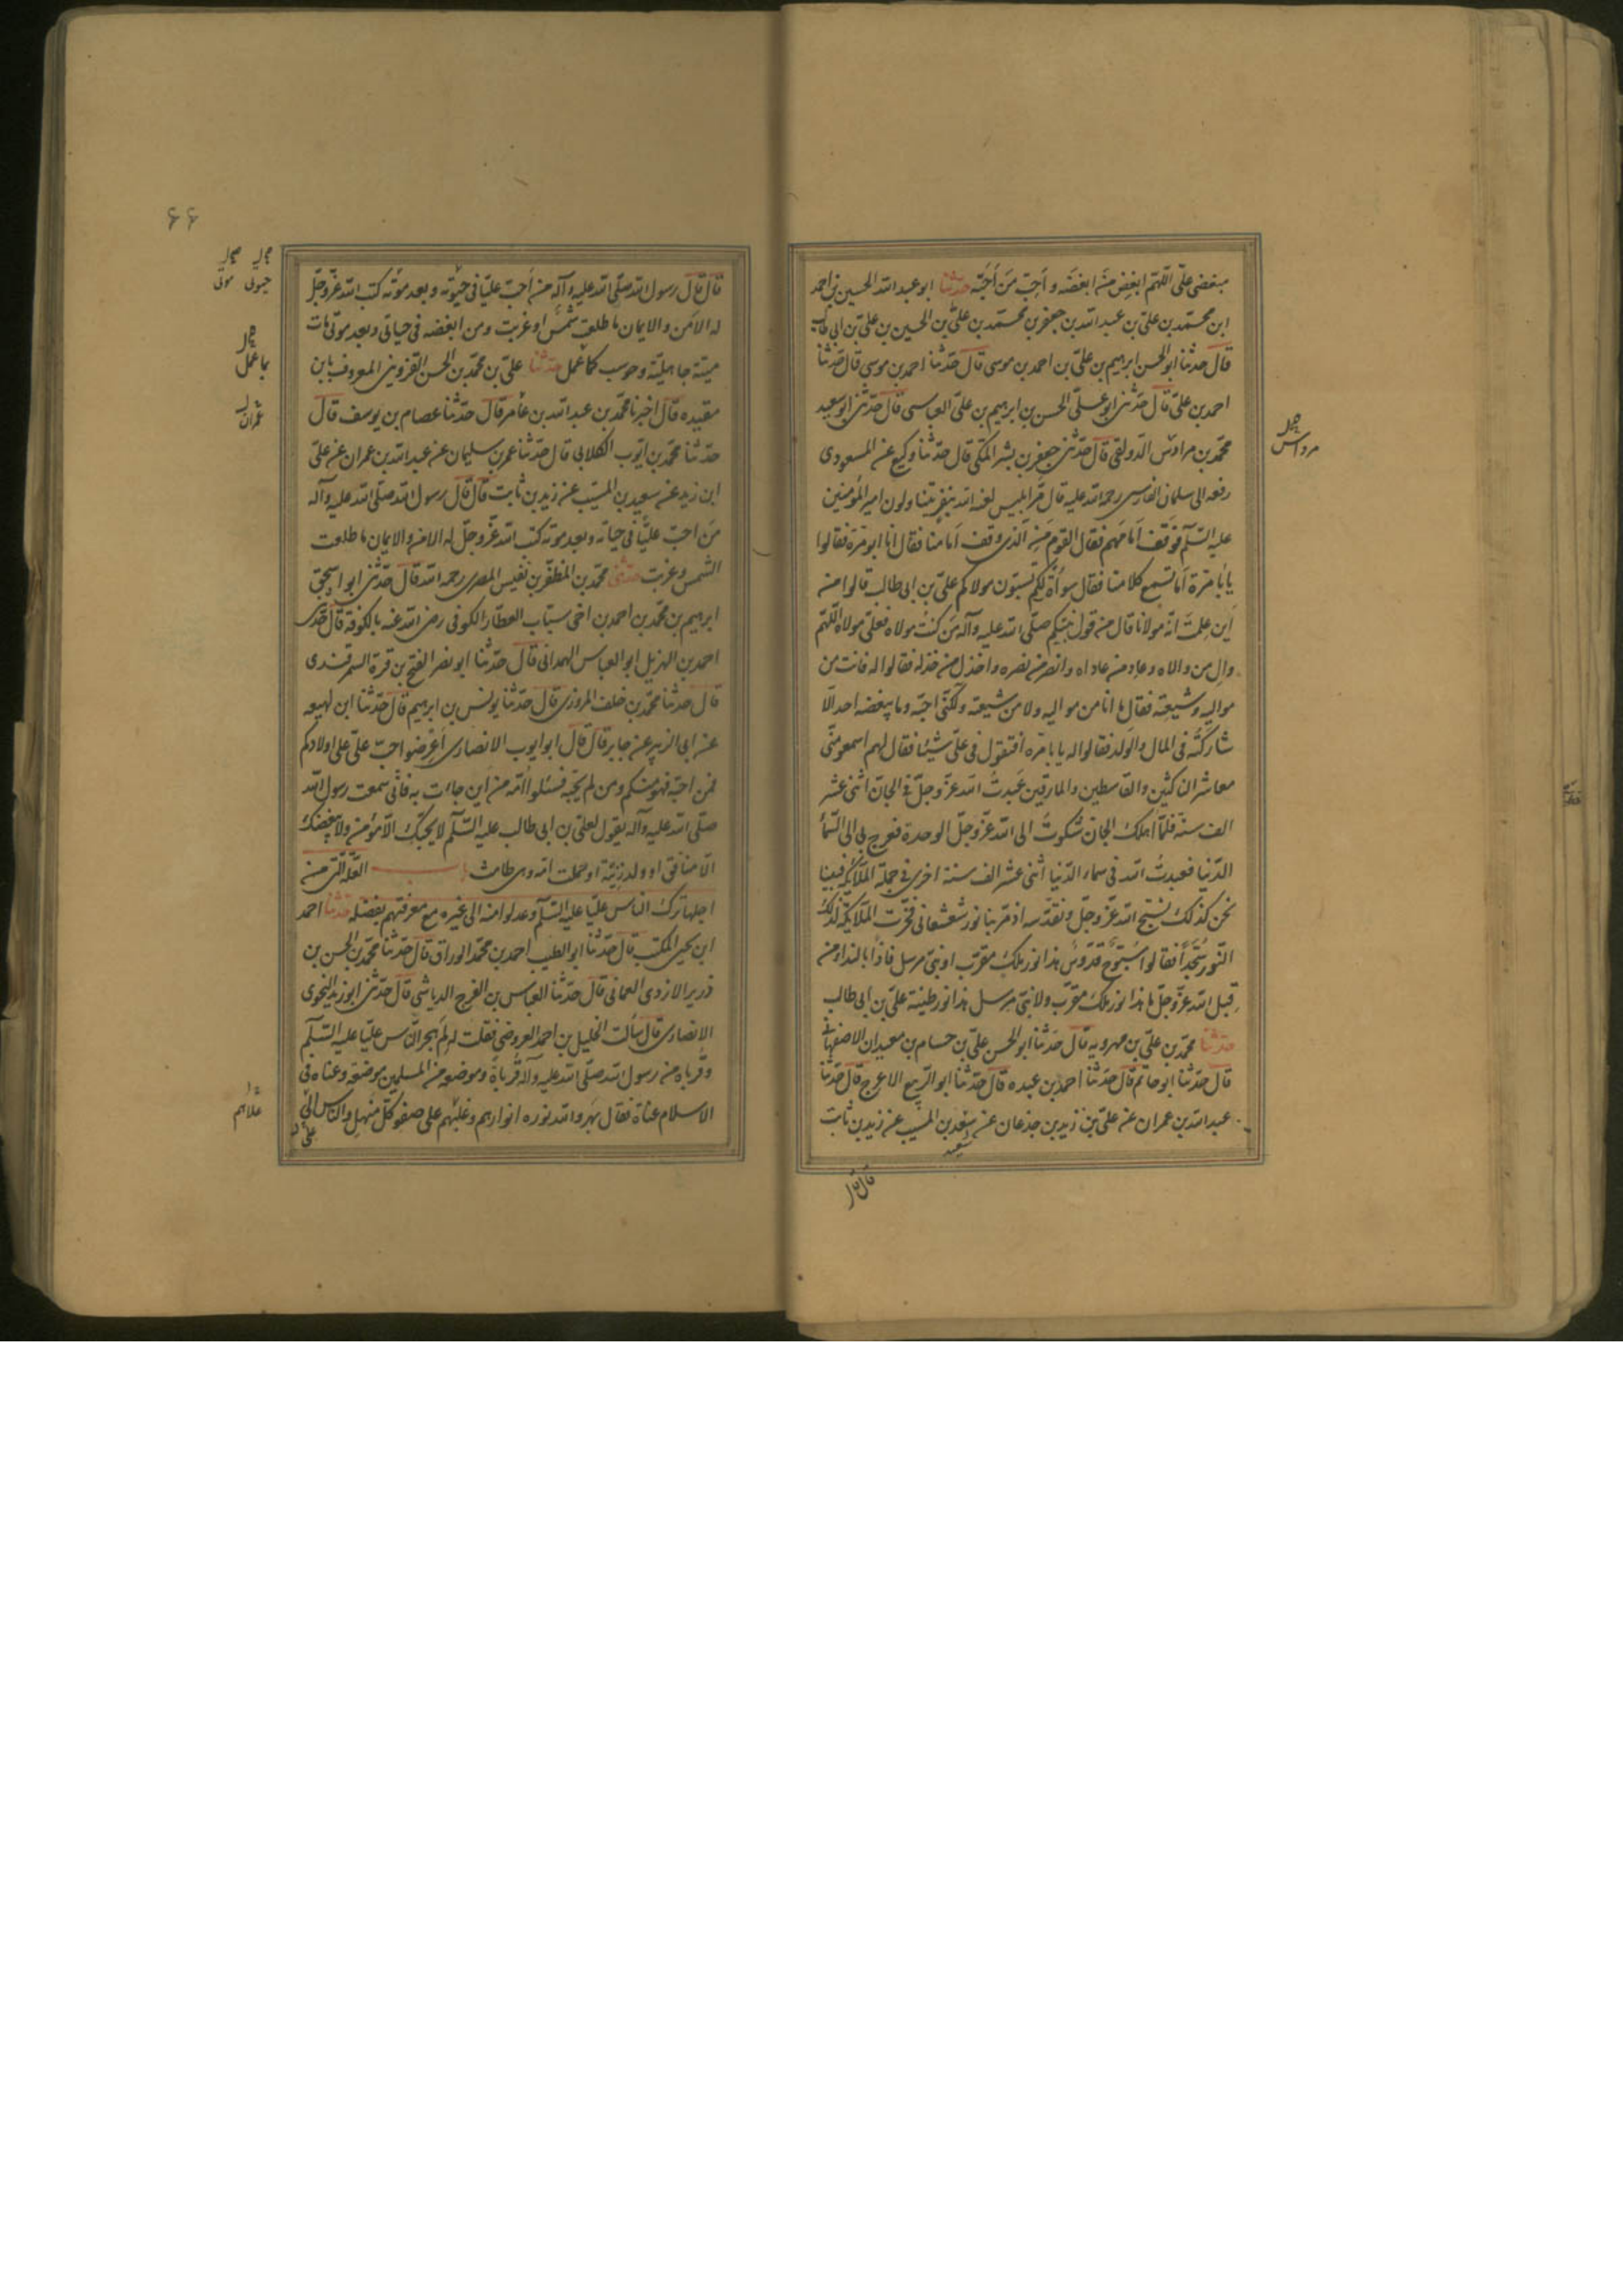 مبغضی علی اللهم ابغض من ابغضه و احب من احبه حدثنا ابو عبد الله الحسین بن احمد
ابن محمد بن علی بن عبد الله بن جعفر بن محمد بن علی بن الحسین بن علی بن ابی طالب
قال حدثنا ابو الحسن ابرهیم بن علی بن احمد بن موسی قال حدثنا احمد بن موسی قال حدثنا
احمد بن علی قال حدثنی ابو علی الحسن بن ابرهیم بن علی العباسی قال حدثنی ابو سعید
محمد بن مراوس الدولقی قال حدثنی جعفر بن بشر المکی قال حدثنا وکیع عن المسعودی
مرداس
رفعه الی سلمان الفارسی رحمه الله علیه قال مر ابلیس لعنه الله بنفر یتناولون امیر المؤمنین
علیه السلم فوقف امامهم فقال القوم من الذی وقف امامنا فقال انا ابو مرة فقالوا
یا ابا مرة اما تسمع کلامنا فقال سوأة لکم تسبون مولاکم علی بن ابی طالب قالوا من
این علمت انه مولانا قال من قول نبیکم صلی الله علیه وآله من کنت مولاه فعلی مولاه اللهم
وال من والاه وعاد من عاداه وانصر من نصره واخذل من خذله فقالوا له فانت من
موالیه وشیعته فقال ما انا من موالیه ولا من شیعته ولکنی احبه وما یبغضه احد الا
شارکته فی المال والولد فقالوا له یا با مره افتقول فی علی شیئا فقال لهم اسمعو منی
معاشر الناکثین والقاسطین والمارقین عبدت الله عز وجل فی الجان اثنی عشر
الف سنة فلما اهلک الجان شکوت الی الله عز وجل الوحدة فعرج بی الی السماء
الدنیا فعبدت الله فی سماء الدنیا اثنی عشر الف سنة اخری فی جملة الملائکة فبینا
نحن کذلک نسبح الله عز وجل ونقدسه اذ مر بنا نور شعشعانی فخرت الملائکة لذلک
النور سجدا فقالوا سبوح قدوس هذا نور ملک مقرب او نبی مرسل فاذا بالنداء من
قبل الله عز وجل ما هذا نور ملک مقرب ولا نبی مرسل هذا نور طینة علی بن ابی طالب
حدثنا محمد بن علی بن مهرویه قال حدثنا ابو الحسن علی بن حسام بن معیدان الاصفهانی
قال حدثنا ابو حاتم قال حدثنا احمد بن عبده قال حدثنا ابو الربیع الاعرج قال حدثنا
عبد الله بن عمران عن علی بن زید بن جذعان عن سعد بن المسیب عن زید بن ثابت
سعید
قال قال
۶۶
قال قال رسول الله صلی الله علیه وآله من احب علیا فی حیوته وبعد موته کتب الله عز وجل
حیوتی موتی
له الامن والایمان ما طلعت شمس او غربت ومن ابغضه فی حیاتی وبعد موتی مات
میتة جاهلیة وحوسب کما عمل حدثنا علی بن محمد بن الحسن القزوینی المعروف بابن
بما عمل
مقبده قال اخبرنا محمد بن عبد الله بن عامر قال حدثنا عصام بن یوسف قال
عمران
حدثنا محمد بن ایوب الکلابی قال حدثنا عمر بن سلیمان عن عبد الله بن عمران عن علی
ابن زید عن سعید بن المسیب عن زید بن ثابت قال قال رسول الله صلی الله علیه وآله
من احب علیا فی حیاته وبعد موته کتب الله عز وجل له الامن والایمان ما طلعت
الشمس وغربت حدثنی محمد بن المظفر بن نفیس المصری رحمه الله قال حدثنی ابو اسحق
ابرهیم بن محمد بن احمد بن اخی سیاب العطار الکوفی رضی الله عنه بالکوفة قال حدثنی
احمد بن الهزیل ابو العباس الهمدانی قال حدثنا ابو نصر الفتح بن قرة السمرقندی
قال حدثنا محمد بن خلف المروزی قال حدثنا یونس بن ابرهیم قال حدثنا ابن لهیعه
عن ابی الزبیر عن جابر قال قال ابو ایوب الانصاری اعرضوا حب علی علی اولادکم
فمن احبه فهو منکم ومن لم یحبه فسئلوا امه من این جاءت به فانی سمعت رسول الله
صلی الله علیه وآله یقول لعلی بن ابی طالب علیه السلم لا یحبک الا مؤمن ولا یبغضک
الا منافق او ولد زنیة او حملت امه وهی طامث باب العلة التی من
اجلها ترک الناس علیا علیه السلم وعدلوا منه الی غیره مع معرفتهم بفضله حدثنا احمد
ابن یحیی المکتب قال حدثنا ابو الطیب احمد بن محمد الوراق قال حدثنا محمد بن الحسن بن
دریر الازدی العمانی قال حدثنا العباس بن الفرج الریاشی قال حدثنی ابو زید النحوی
الانصاری قال سألت الخلیل بن احمد العروضی فقلت له لم هجر الناس علیا علیه السلم
وقرباه من رسول الله صلی الله علیه وآله قرباه وموضعه من المسلمین موضعه وعناه فی
الاسلام عناه فقال بهر والله نوره انوارهم وغلبهم علی صفو کل منهل والناس الی